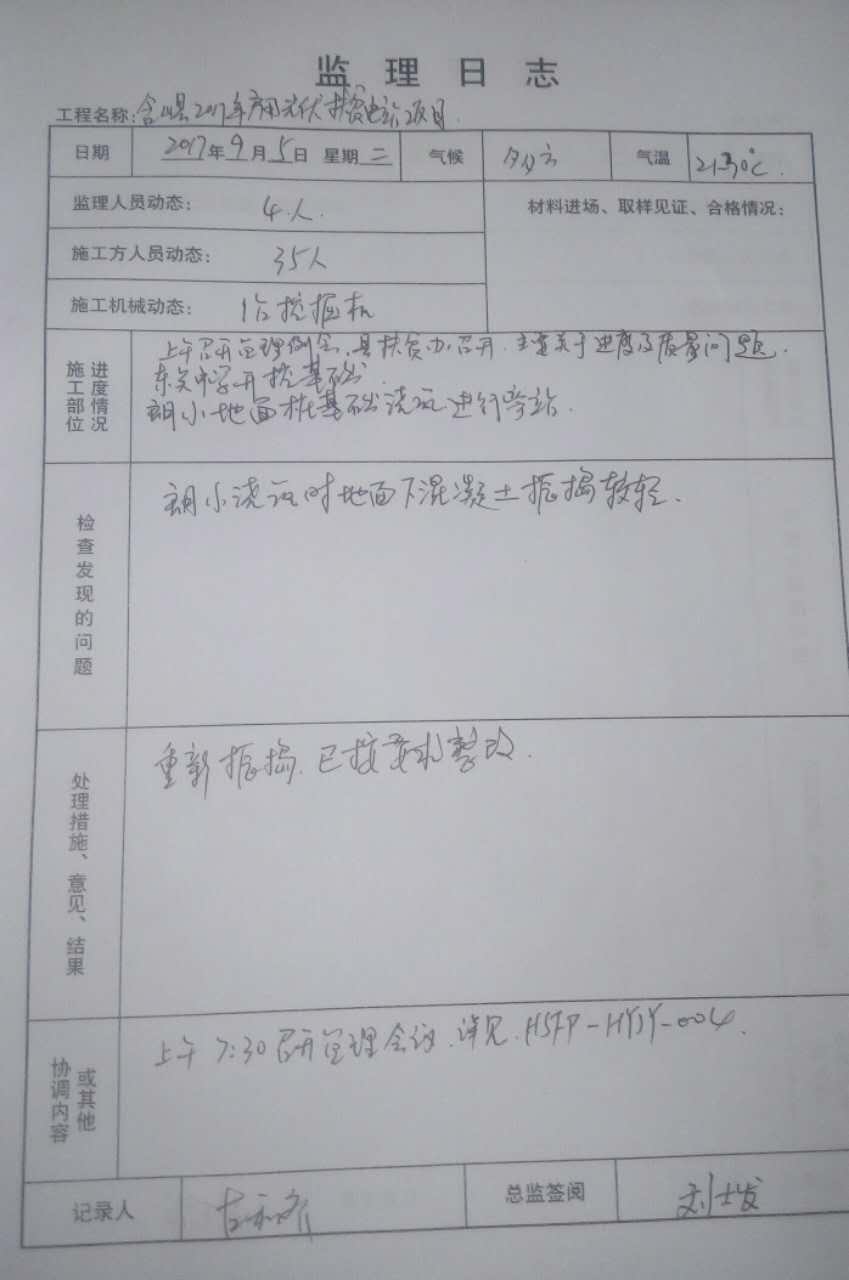 监理日志
工程名称：含山县2017年户用光伏扶贫电站项目
日期 2017年9月5日 星期二 气候 多云 气温 21-30℃
监理人员动态： 4人 材料进场、取样见证、合格情况：
施工方人员动态： 35人
施工机械动态： 1台挖掘机
施工部位进度情况
上午召开监理例会，县扶贫办召开，主要关于进度及质量问题．
东关中学开挖基础．
小地面桩基础浇筑进行旁站．
检查发现的问题
小浇筑时地面下混凝土振捣较轻．
处理措施、意见、结果
重新振捣，已按要求整改．
协调内容或其他
上午7:30召开监理会议，详见HSFP-HYJY-004．
记录人 总监签阅